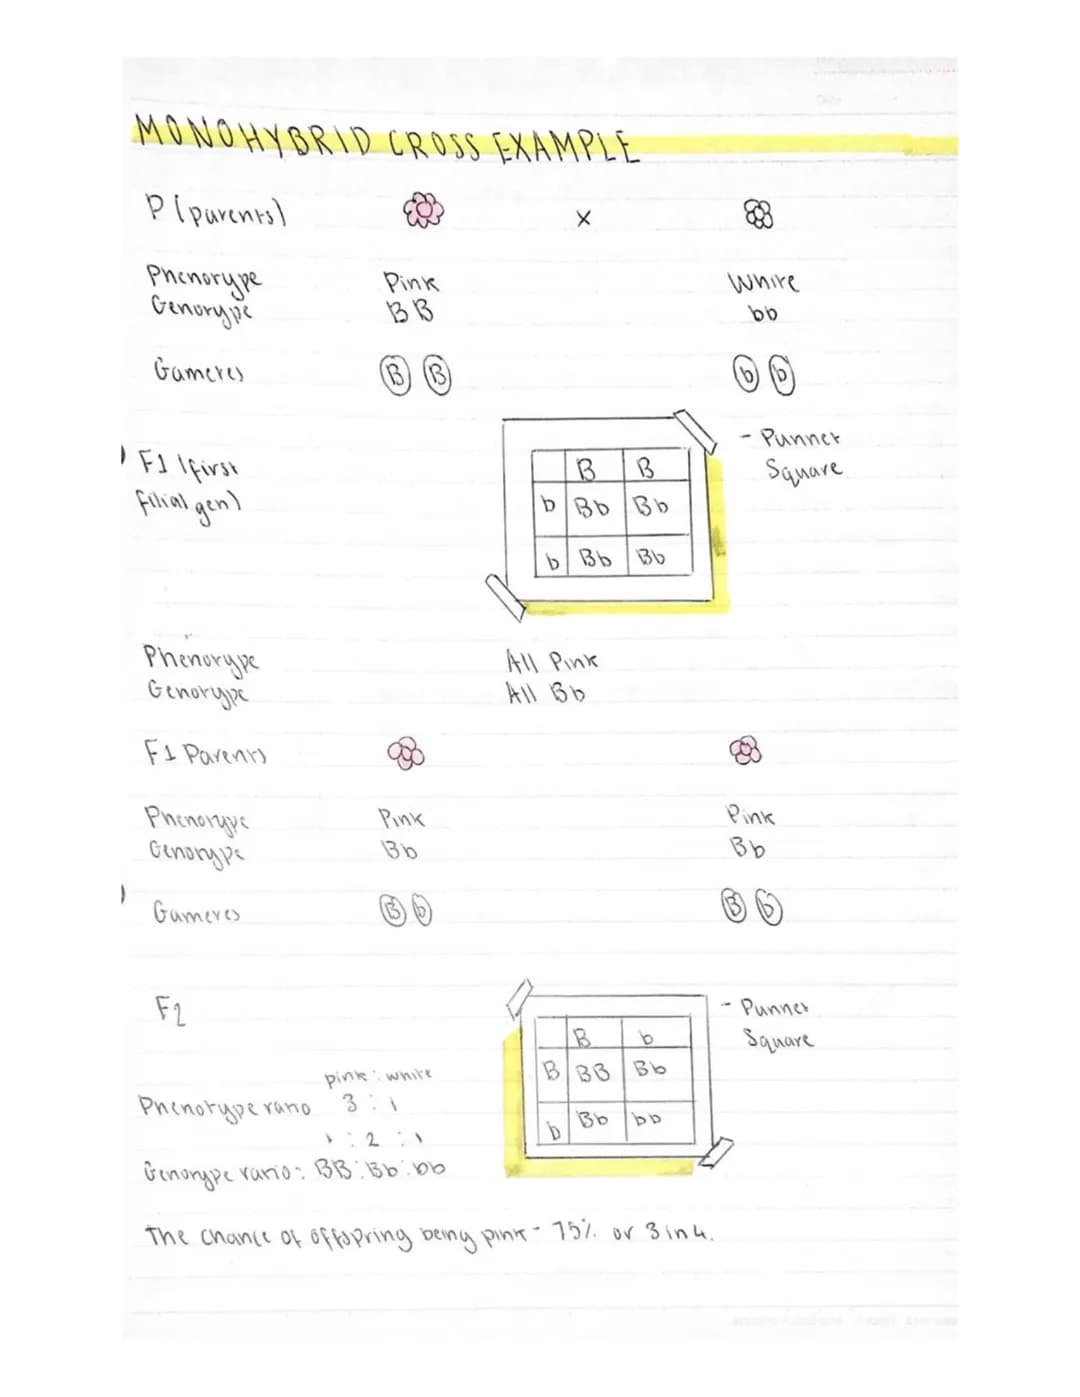 MONOHYBRID CROSS EXAMPLE
P (parents) x
Phenotype Pink White
Genotype BB bb
Gametes B B b b
- Punnet
Square
F1 (first
filial gen)
B B
b Bb Bb
b Bb Bb
Phenotype All Pink
Genotype All Bb
F1 Parents
Phenotype Pink Pink
Genotype Bb Bb
Gametes B b B b
F2
- Punnet
Square
B b
B BB Bb
b Bb bb
pink : white
Phenotype ratio 3 : 1
1 : 2 : 1
Genotype ratio: BB:Bb:bb
The chance of offspring being pink - 75% or 3 in 4.